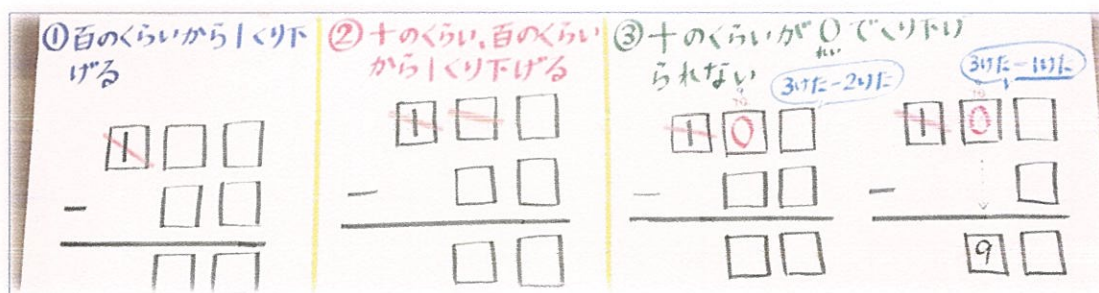 ①百のくらいから1くり下
げる
1
−
②十のくらい、百のくらい
から1くり下げる
1
−
③十のくらいが0でくり下げ
れい
られない
3けた−2けた
10
1 0
−
3けた−1けた
10
1 0
−
9